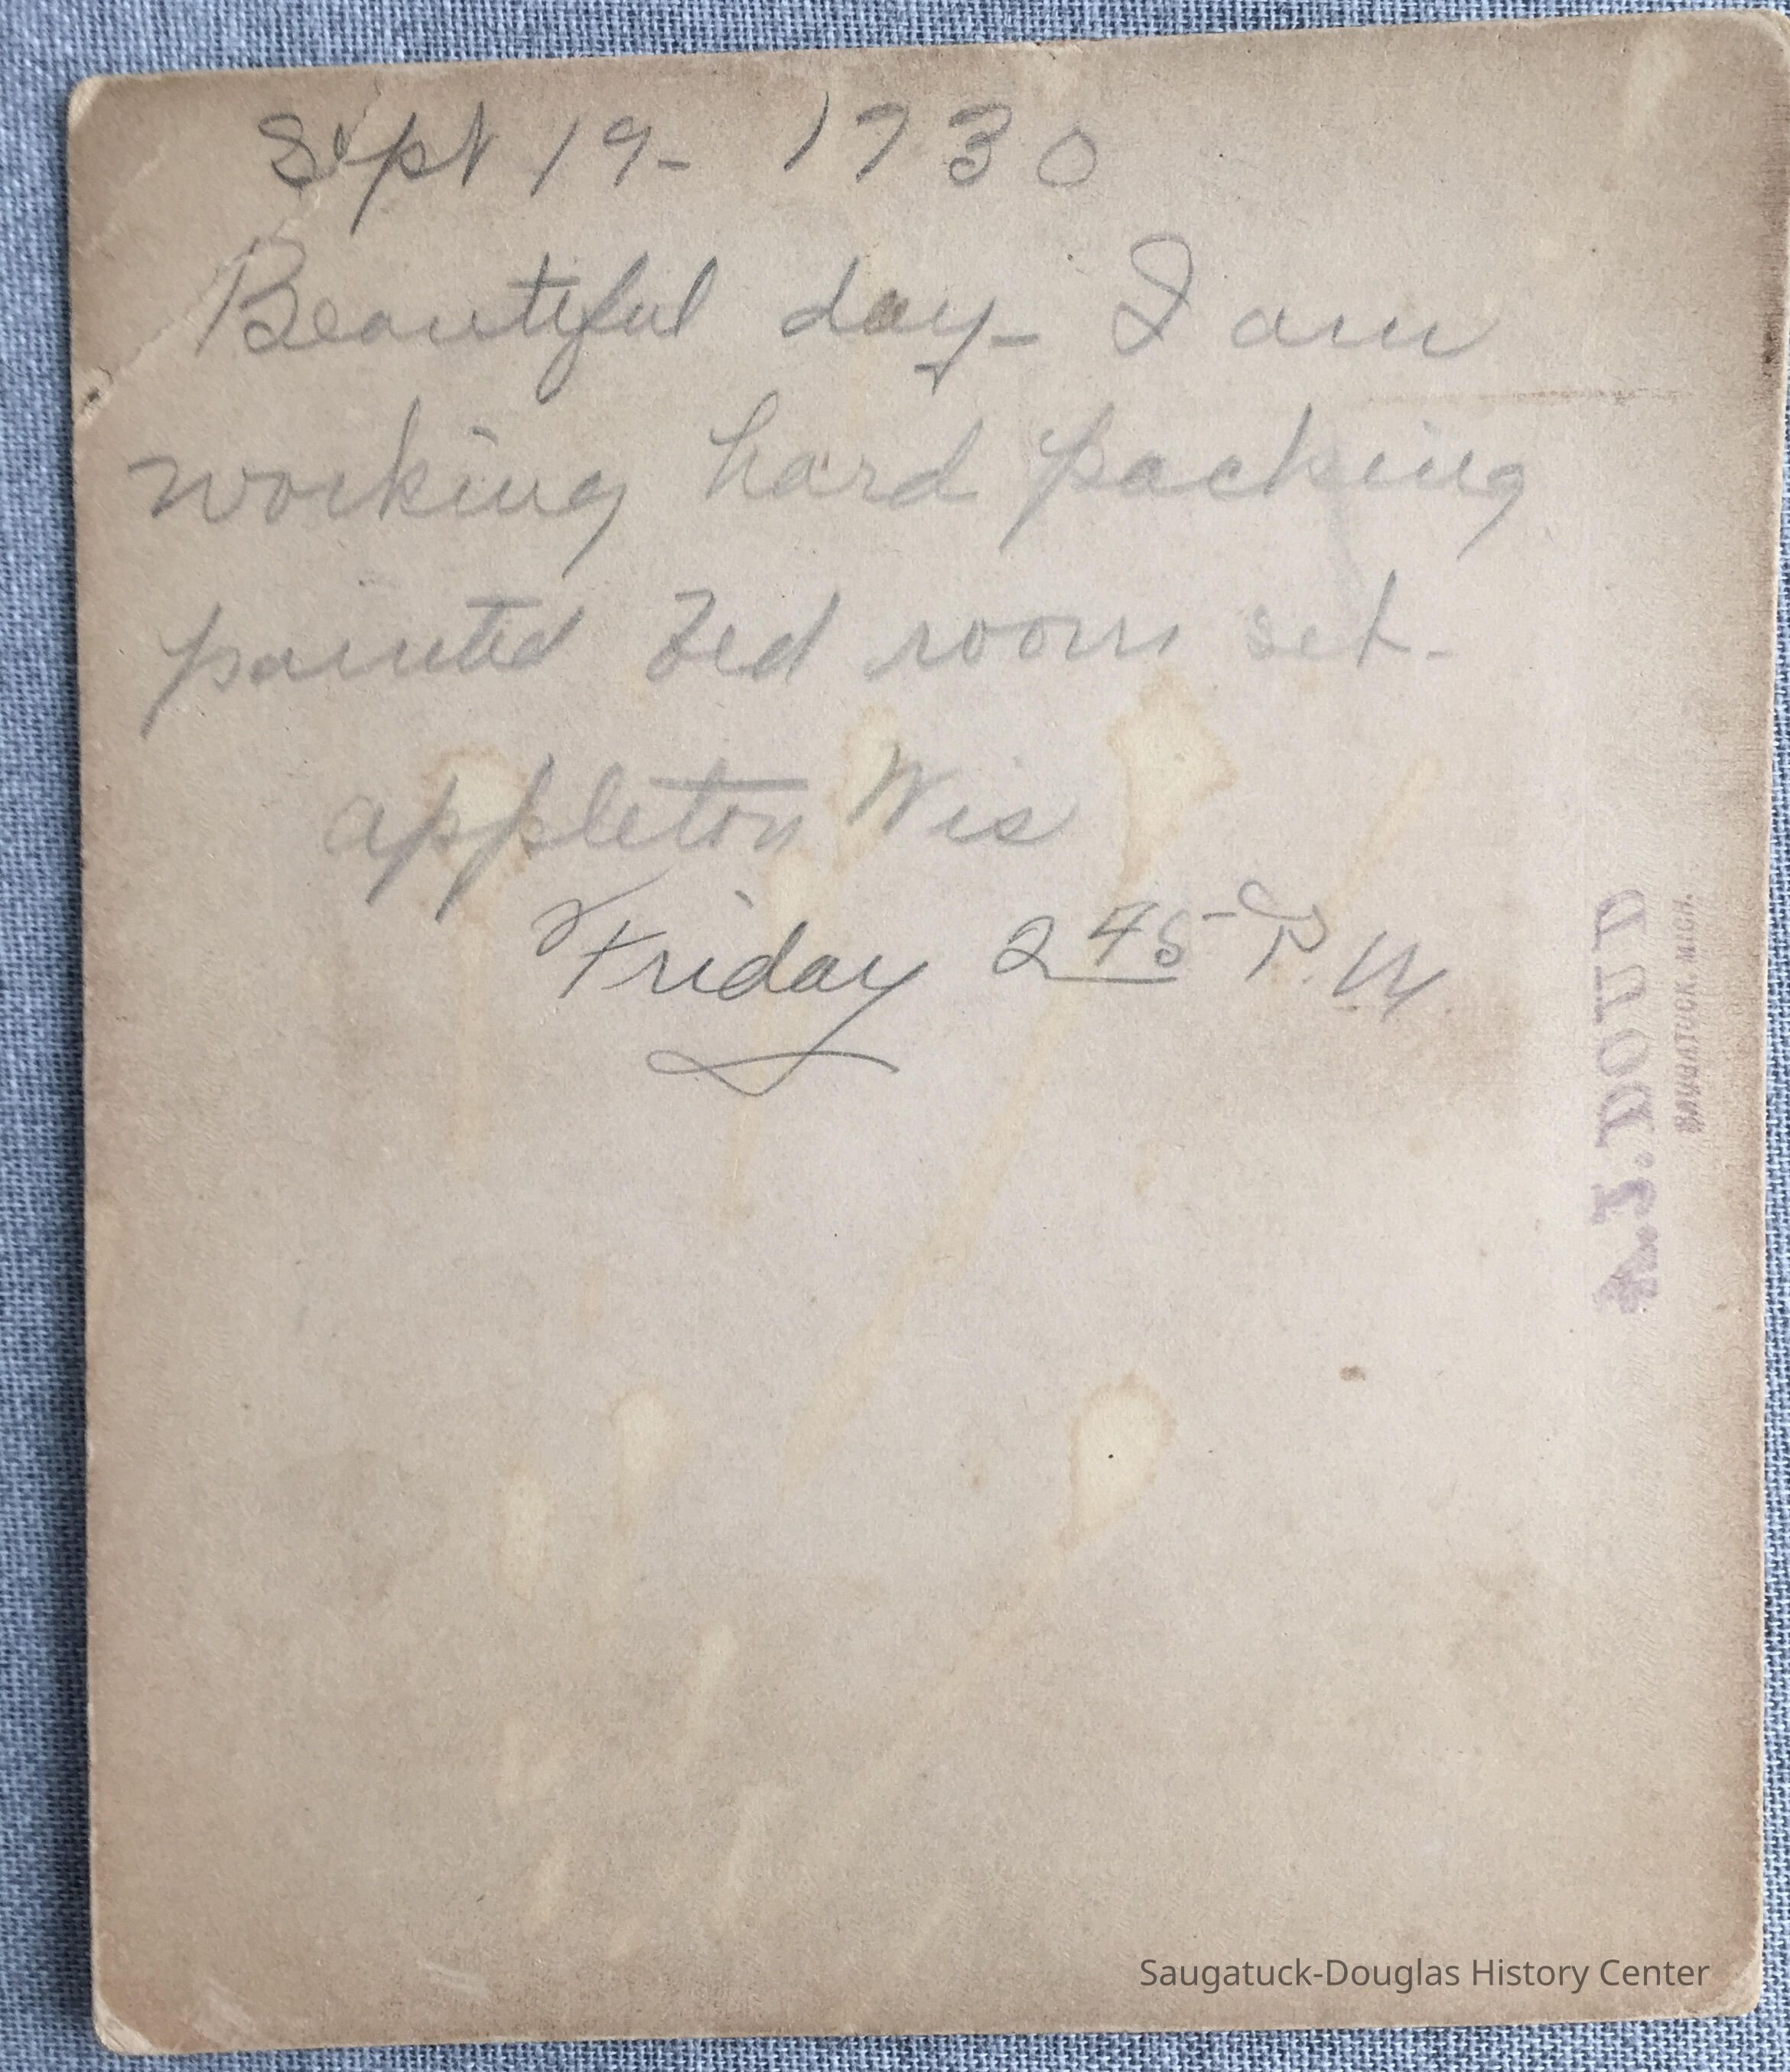 Sept 19- 1930
Beautiful day- I am
working hard packing
painted bed room set-
appleton Wis
Friday 2 45 P.M.
A. J. DOUD
SAUGATUCK, MICH.
Saugatuck-Douglas History Center